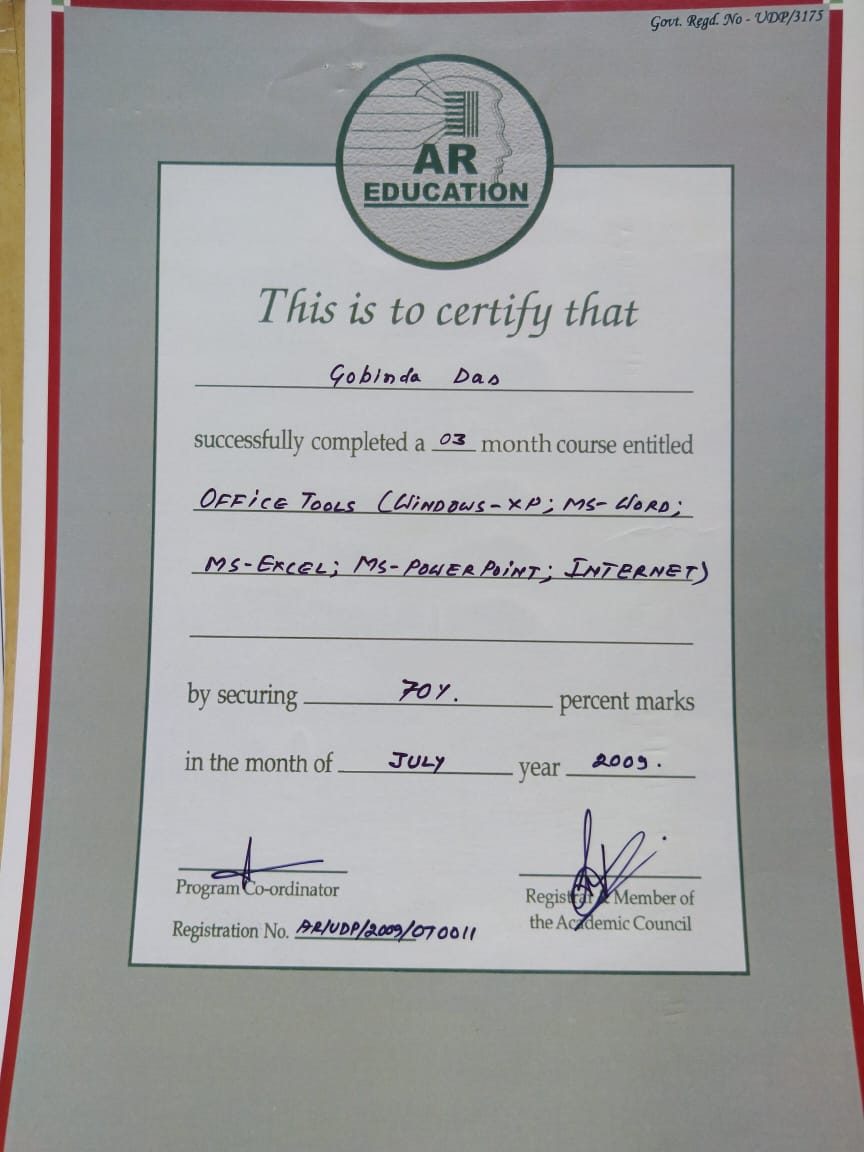 Govt. Regd. No - UDP/3175
AR
EDUCATION
This is to certify that
Gobinda Das
successfully completed a 03 month course entitled
OFFICE TOOLS (WINDOWS-XP; MS-WORD;
MS-EXCEL; MS-POWERPOINT; INTERNET)
by securing 70%. percent marks
in the month of JULY year 2009.
Program Co-ordinator
Registrar & Member of
the Academic Council
Registration No. AR/UDP/2009/070011